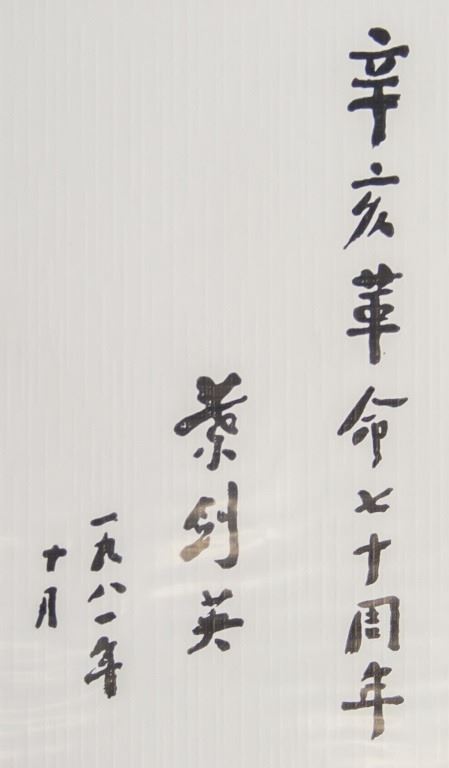 辛亥革命七十周年
葉剑英
一九八一年
十月